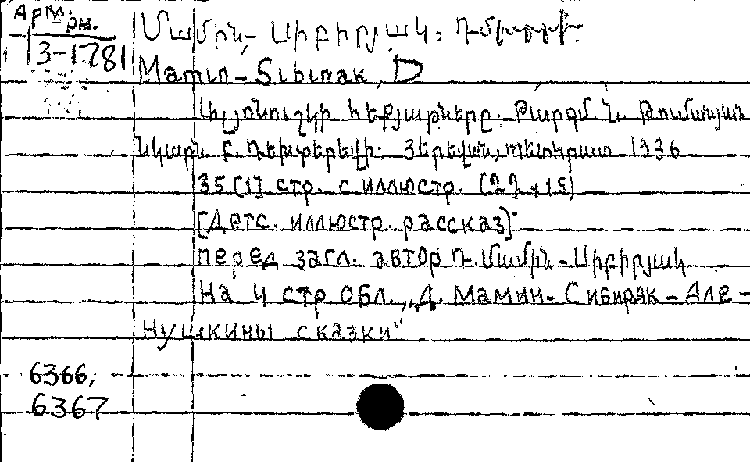 Арм
3-1781
Մամին-Սիբիրյակ, Դմիտրի
Mamin-Sibirak, D
Ալյոնուշկի հեքյաթները. Թարգմ Ն. Թումանյան
Նկարն. Երեվան, Պետհրատ 1936
35 [1] стр. с иллюстр. (22×15)
[Детс. иллюстр. рассказ]
перед загл. автор Դ. Մամին-Սիբիրյակ
На 4 стр обл. „Д. Мамин-Сибиряк-Але-
нушкины сказки"
6366,
6367